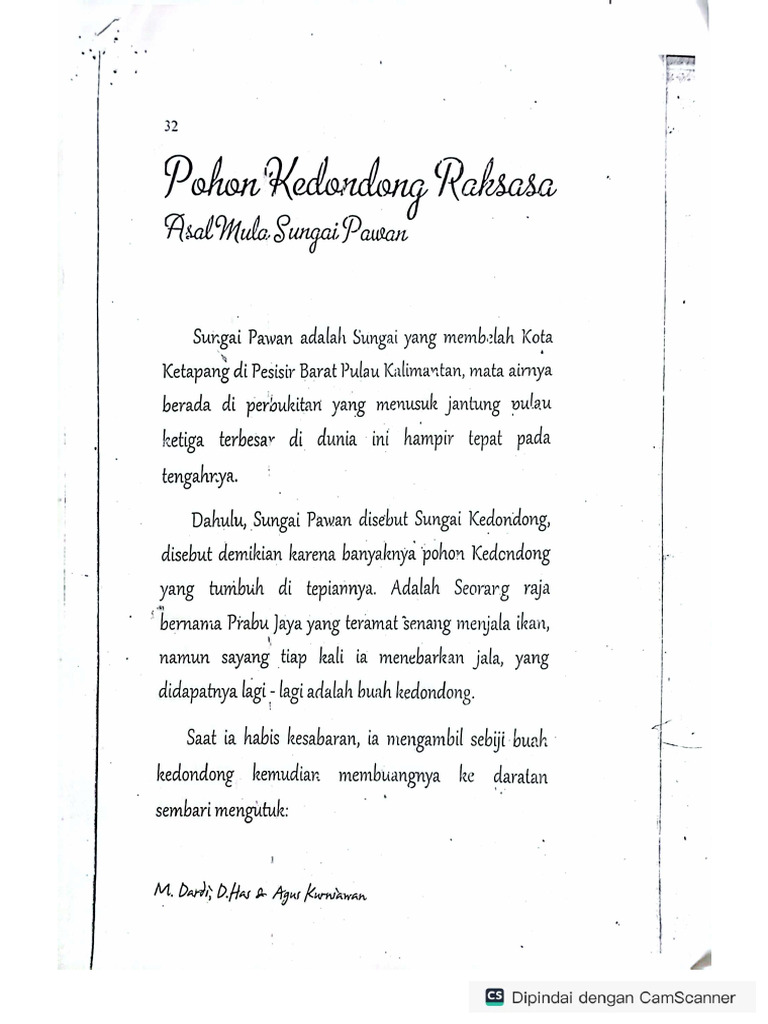 32
Pohon Kedondong Raksasa
Asal Mula Sungai Pawan
Sungai Pawan adalah Sungai yang membelah Kota
Ketapang di Pesisir Barat Pulau Kalimantan, mata airnya
berada di perbukitan yang menusuk jantung pulau
ketiga terbesar di dunia ini hampir tepat pada
tengahnya.
Dahulu, Sungai Pawan disebut Sungai Kedondong,
disebut demikian karena banyaknya pohon Kedondong
yang tumbuh di tepiannya. Adalah Seorang raja
bernama Prabu Jaya yang teramat senang menjala ikan,
namun sayang tiap kali ia menebarkan jala, yang
didapatnya lagi - lagi adalah buah kedondong.
Saat ia habis kesabaran, ia mengambil sebiji buah
kedondong kemudian membuangnya ke daratan
sembari mengutuk:
M. Dardi, D.Has & Agus Kurniawan
CS Dipindai dengan CamScanner